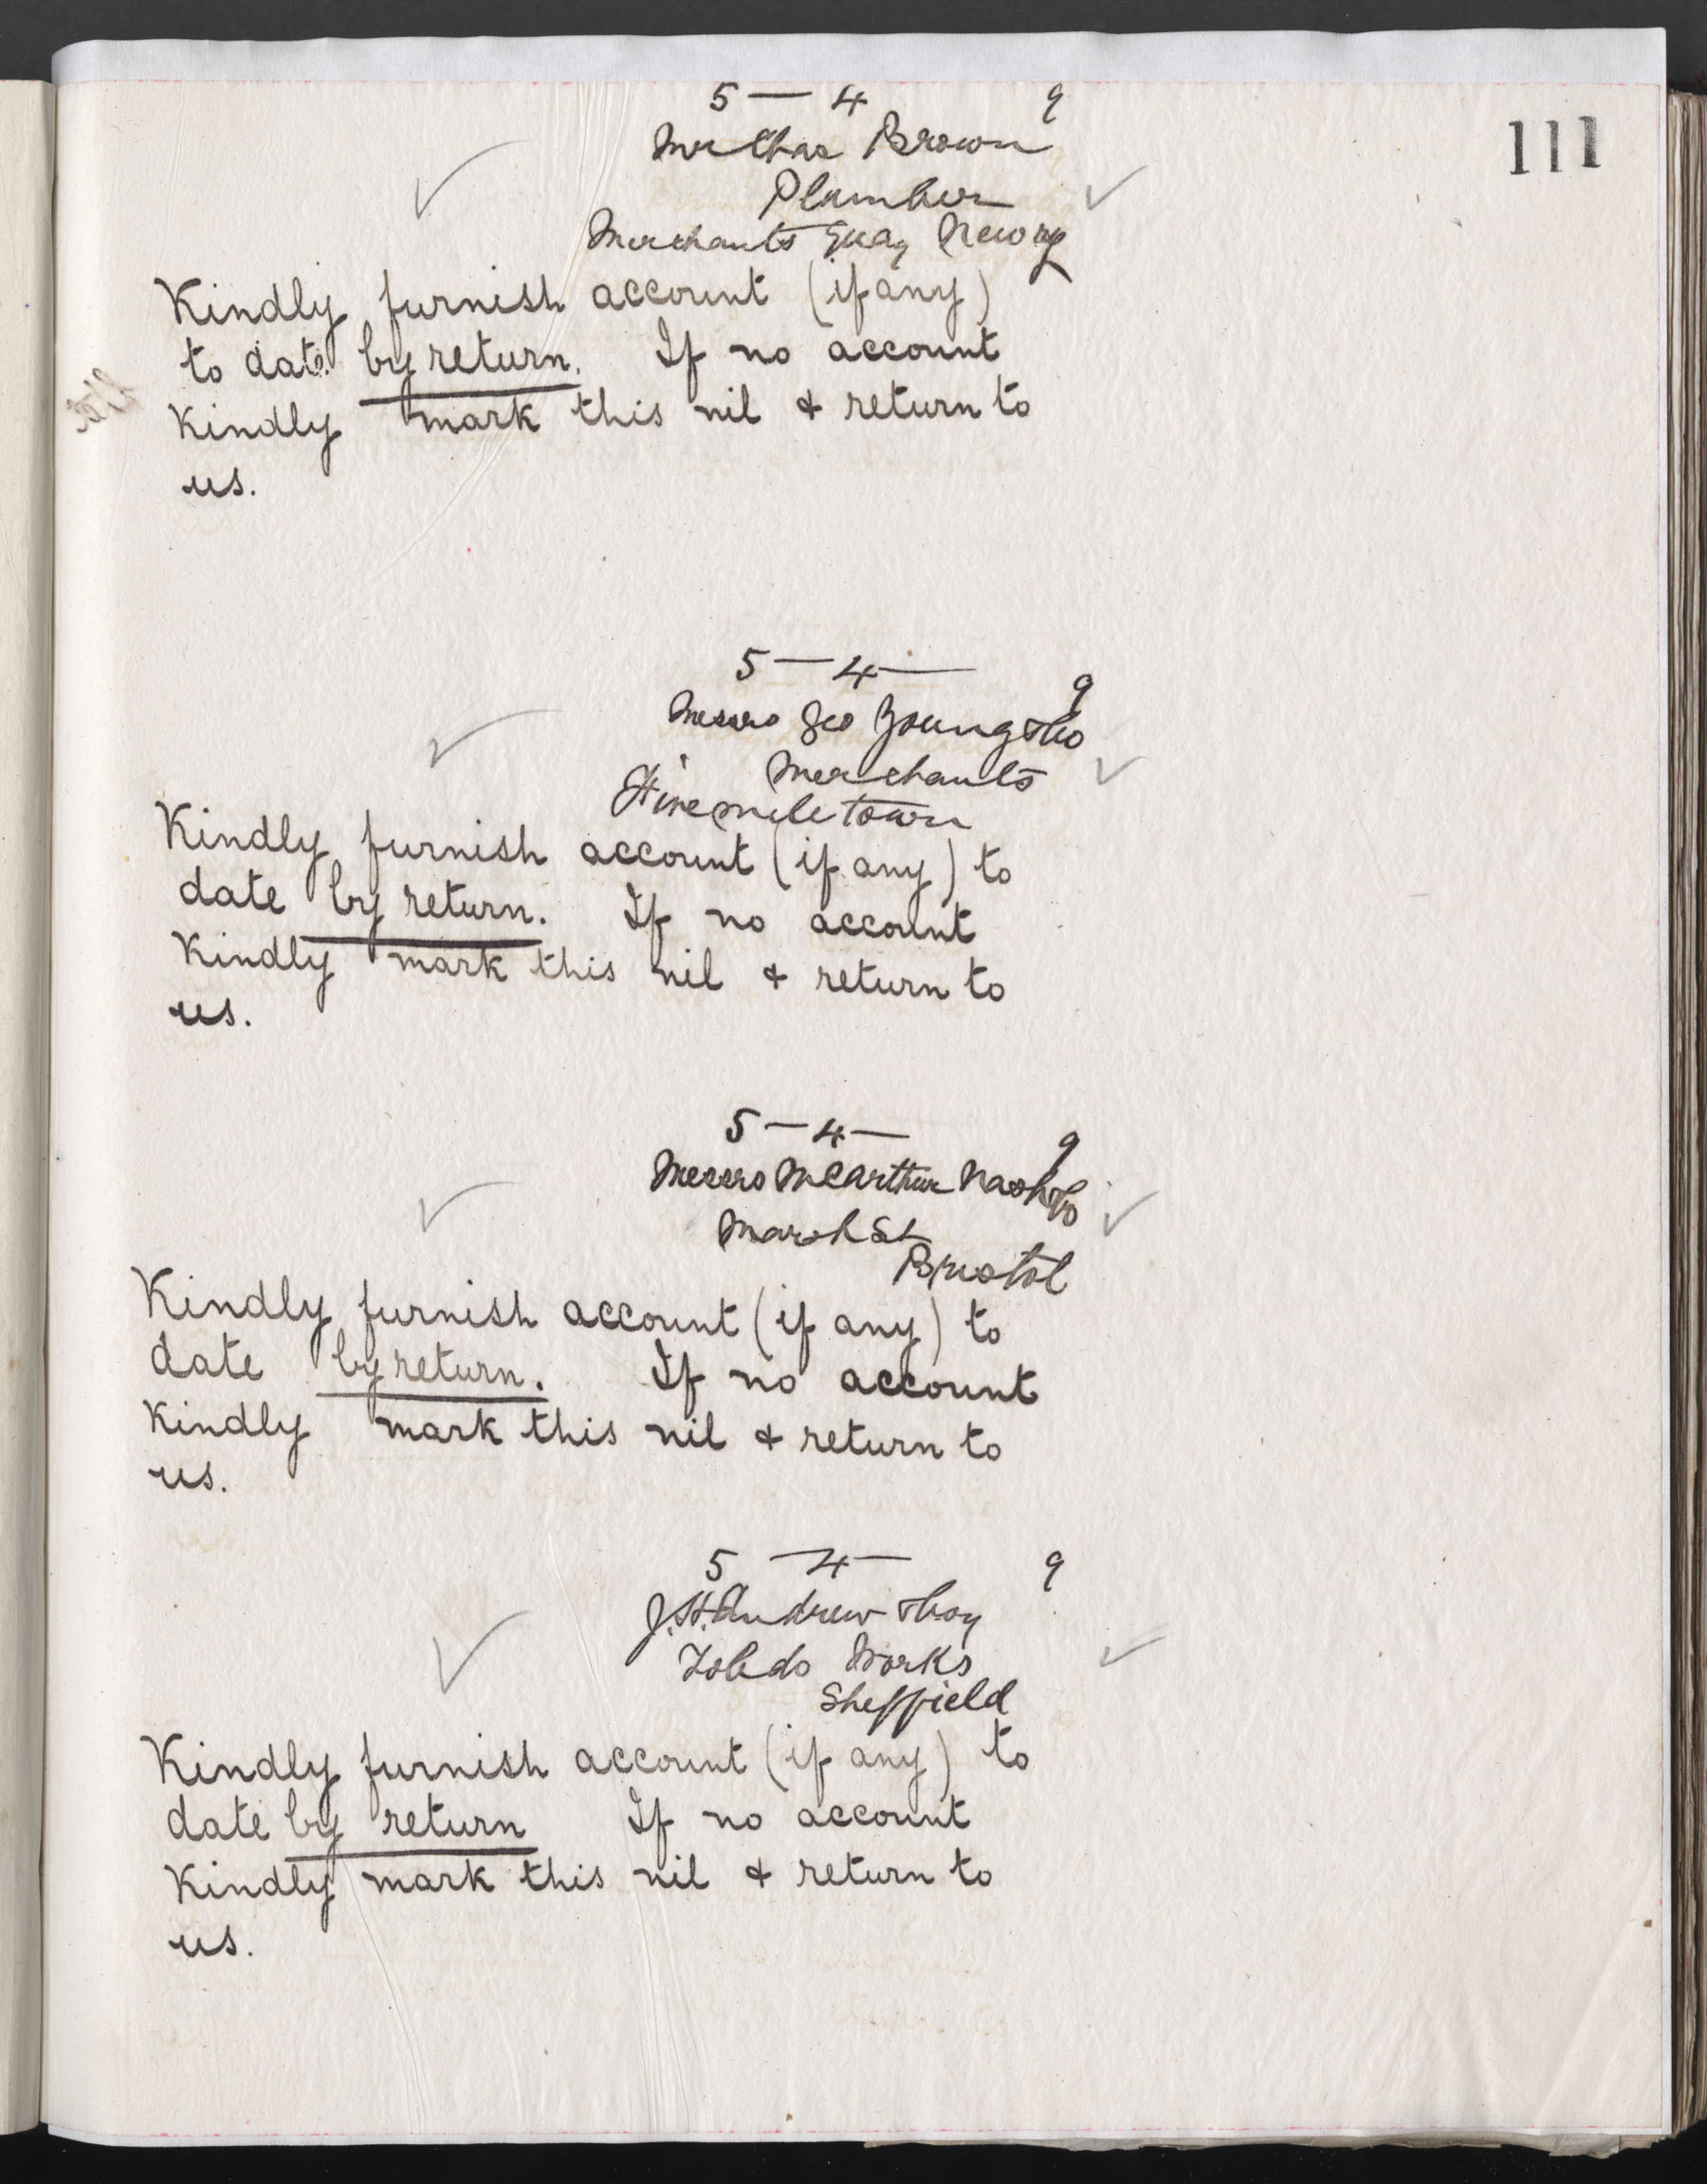 111
5 — 4 9
Mr Chas Brown
Plumber
Merchants Quay Newry
Kindly furnish account (if any)
to date by return. If no account
Kindly mark this nil & return to
us.
5 — 4 — 9
Messrs Geo Young & Co
Merchants
Fivemiletown
Kindly furnish account (if any) to
date by return. If no account
Kindly mark this nil & return to
us.
5 — 4 — 9
Messrs McArthur Nash & Co
Marsh St
Bristol
Kindly furnish account (if any) to
date by return. If no account
Kindly mark this nil & return to
us.
5 — 4 — 9
J. H. Andrew & Coy
Toledo Works
Sheffield
Kindly furnish account (if any) to
date by return If no account
Kindly mark this nil & return to
us.